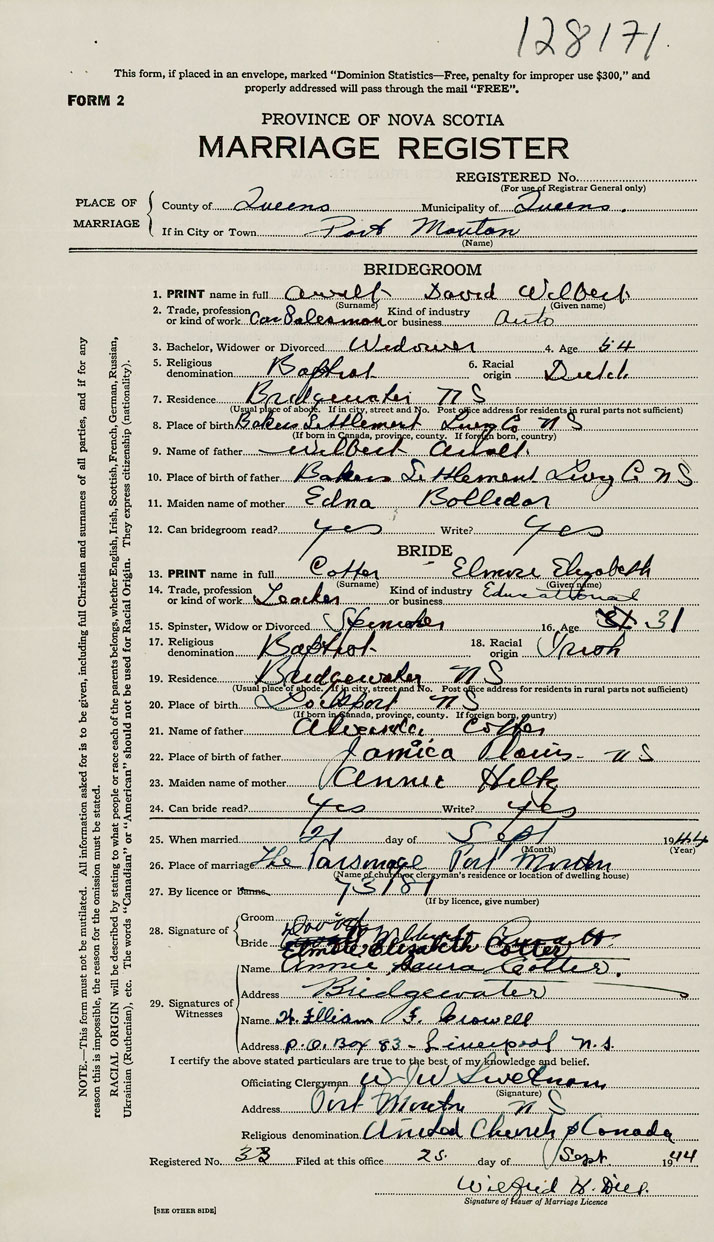 128171
This form, if placed in an envelope, marked "Dominion Statistics—Free, penalty for improper use $300," and
properly addressed will pass through the mail "FREE".
FORM 2
PROVINCE OF NOVA SCOTIA
MARRIAGE REGISTER
REGISTERED No.
(For use of Registrar General only)
PLACE OF MARRIAGE
County of Queens Municipality of Queens.
If in City or Town Port Mouton
(Name)
BRIDEGROOM
1. PRINT name in full David Wilbert
(Surname) (Given name)
2. Trade, profession or kind of work Car Salesman Kind of industry or business Auto
3. Bachelor, Widower or Divorced Widower 4. Age 54
5. Religious denomination Baptist 6. Racial origin Dutch
7. Residence Bridgewater N S
(Usual place of abode. If in city, street and No. Post office address for residents in rural parts not sufficient)
8. Place of birth Bakers Settlement Co N S
(If born in Canada, province, county. If foreign born, country)
9. Name of father Wilbert
10. Place of birth of father Bakers Settlement Co N S
11. Maiden name of mother Edna
12. Can bridegroom read? yes Write? yes
BRIDE
13. PRINT name in full Cotter Elizabeth
(Surname) (Given name)
14. Trade, profession or kind of work Teacher Kind of industry or business Educational
15. Spinster, Widow or Divorced Spinster 16. Age 31
17. Religious denomination Baptist 18. Racial origin Irish
19. Residence Bridgewater N S
(Usual place of abode. If in city, street and No. Post office address for residents in rural parts not sufficient)
20. Place of birth Lockeport N S
(If born in Canada, province, county. If foreign born, country)
21. Name of father Cotter
22. Place of birth of father Jamica Plains - N S
23. Maiden name of mother Annie
24. Can bride read? yes Write? yes
25. When married 21 day of Sept 1944
(Month) (Year)
26. Place of marriage The Parsonage Port Mouton
(Name of church or clergyman's residence or location of dwelling house)
27. By licence or banns 73181
(If by licence, give number)
28. Signature of
Groom David
Bride Elizabeth Cotter
29. Signatures of Witnesses
Name Annie Laura Cotter.
Address Bridgewater
Name F. Crowell
Address P.O. Box 83 - Liverpool N.S.
I certify the above stated particulars are true to the best of my knowledge and belief.
Officiating Clergyman W W
(Signature)
Address Port Mouton N S
Religious denomination United Church of Canada
Registered No. 33 Filed at this office 25 day of Sept 1944
Wilfrid H.
Signature of Issuer of Marriage Licence
[SEE OTHER SIDE]
NOTE.—This form must not be mutilated. All information asked for is to be given, including full Christian and surnames of all parties, and if for any
reason this is impossible, the reason for the omission must be stated.
RACIAL ORIGIN will be described by stating to what people or race each of the parents belongs, whether English, Irish, Scottish, French, German, Russian,
Ukrainian (Ruthenian), etc. The words "Canadian" or "American" should not be used for Racial Origin. They express citizenship (nationality).